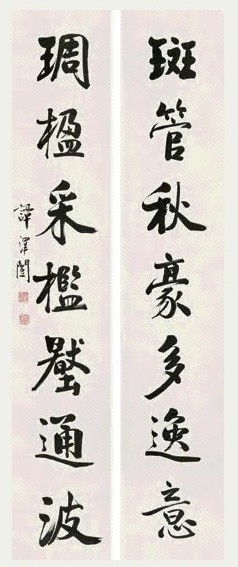 斑管秋豪多逸意
琱楹采檻壓通波
譚澤闓